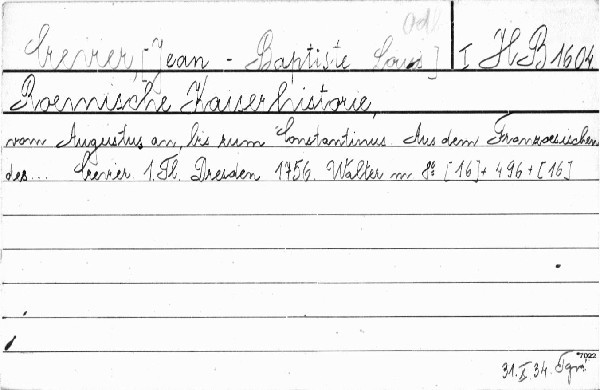 adl
Crevier, [Jean - Baptiste Louis] I HB 1604
Roemische Kaiserhistorie,
vom Augustus an, bis zum Constantinus. Aus dem Franzoesischen
des... Crevier. 1. Tl. Dresden 1756. Walter m 8º [16] + 496 + [16]
*7022
31.X.34.